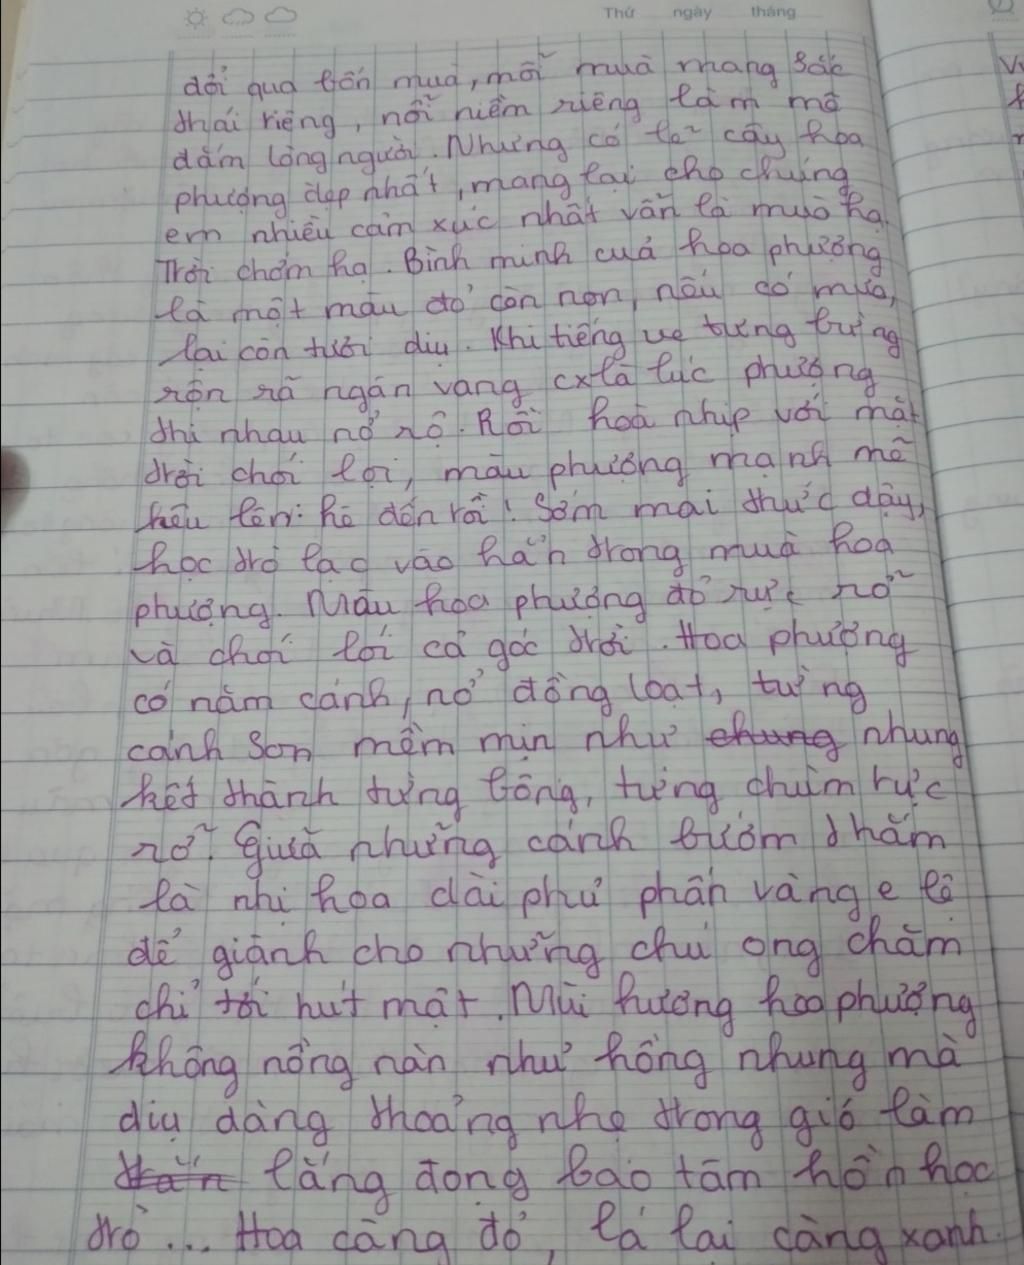 Thứ ngày tháng
đổi qua bốn mùa, mỗi mùa mang sắc
thái riêng, nỗi niềm riêng làm mê
đắm lòng người. Nhưng có lẽ cây hoa
phượng đẹp nhất, mang lại cho chúng
em nhiều cảm xúc nhất vẫn là muò hạ.
Trời chớm hạ. Bình minh cuả hoa phượng
là một màu đỏ còn non, nếu có mưa,
lại còn tươi dịu. Khi tiếng ve tưng bừng
rộn rã ngân vang cxlà lúc phượng
thi nhau nở rộ. Rồi hoà nhịp với mặt
trời chói lọi, màu phượng mạnh mẽ
kêu lên: hè đến rồi! Sớm mai thức dậy,
học trò lạc vào hẳn trong muà hoa
phượng. Màu hoa phượng đỏ rực rỡ
và chói lói cả góc trời. Hoa phượng
có năm cánh, nở đồng loạt, từng
cánh son mềm mịn như chung nhung
kết thành từng bông, từng chùm rực
rỡ. Giưã những cánh bướm thắm
là nhị hoa dài phủ phấn vàng e lệ
để giành cho những chú ong chăm
chỉ tới hút mật. Mùi hương hoa phượng
không nồng nàn như hồng nhung mà
dịu dàng thoảng nhẹ trong gió làm
lắng đọng bao tâm hồn học
trò... Hoa càng đỏ, lá lại càng xanh.